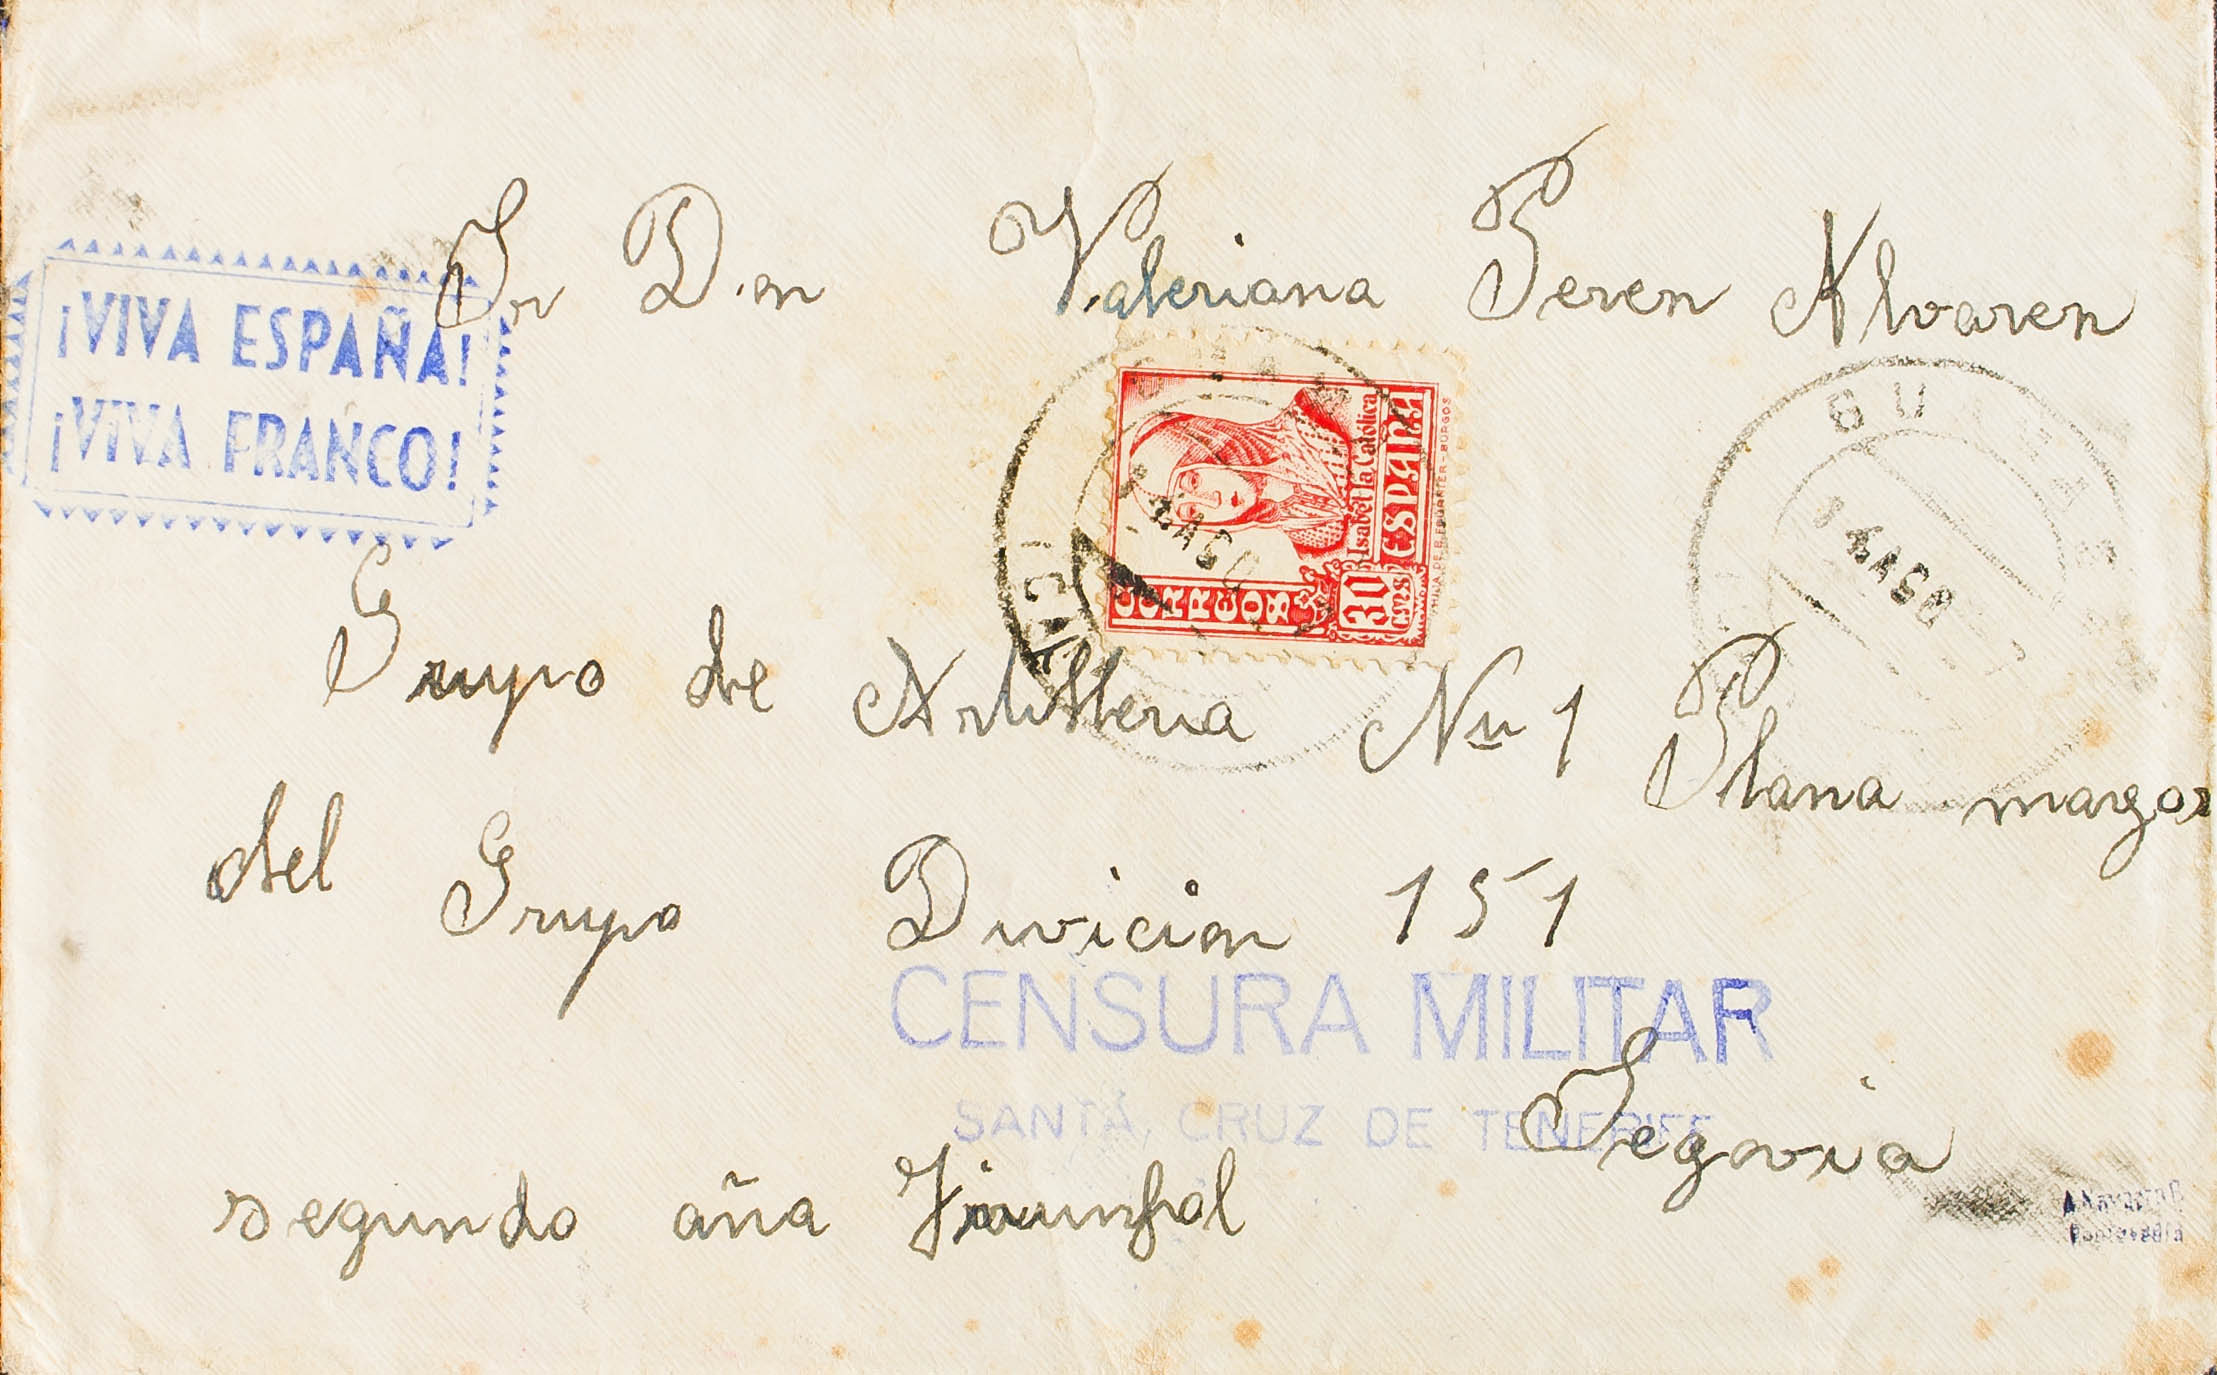 ¡VIVA ESPAÑA!
¡VIVA FRANCO!
Sr Don Valeriana Peren Alvaren
CORREOS
30 CTS
Isabel la Católica
ESPAÑA
Grupo de Artilleria Nu 1 Plana magor
del Grupo Divicion 151
CENSURA MILITAR
SANTA CRUZ DE TENERIFE
Segovia
segundo aña Triunfal
Pontevedra